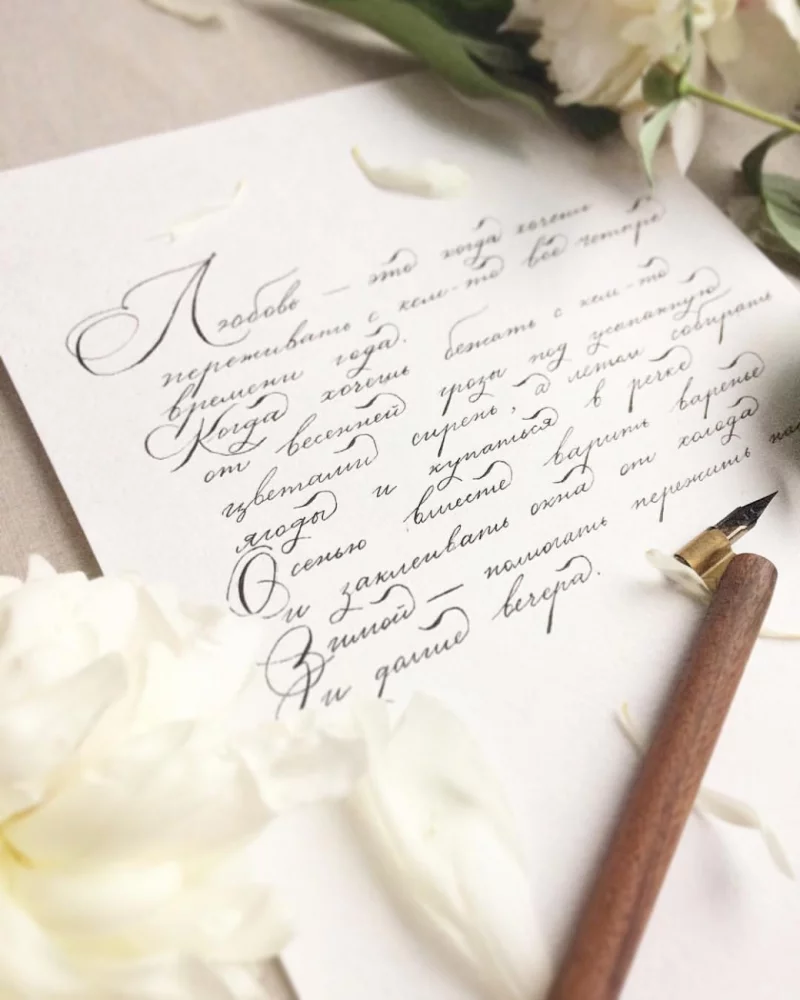 Любовь — это когда хочешь
переживать с кем-то все четыре
времени года.
Когда хочешь бежать с кем-то
от весенней грозы под усыпанную
цветами сирень, а летом собирать
ягоды и купаться в речке
Осенью вместе варить варенье
и заклеивать окна от холода
Зимой — помогать пережить
и долгие вечера.